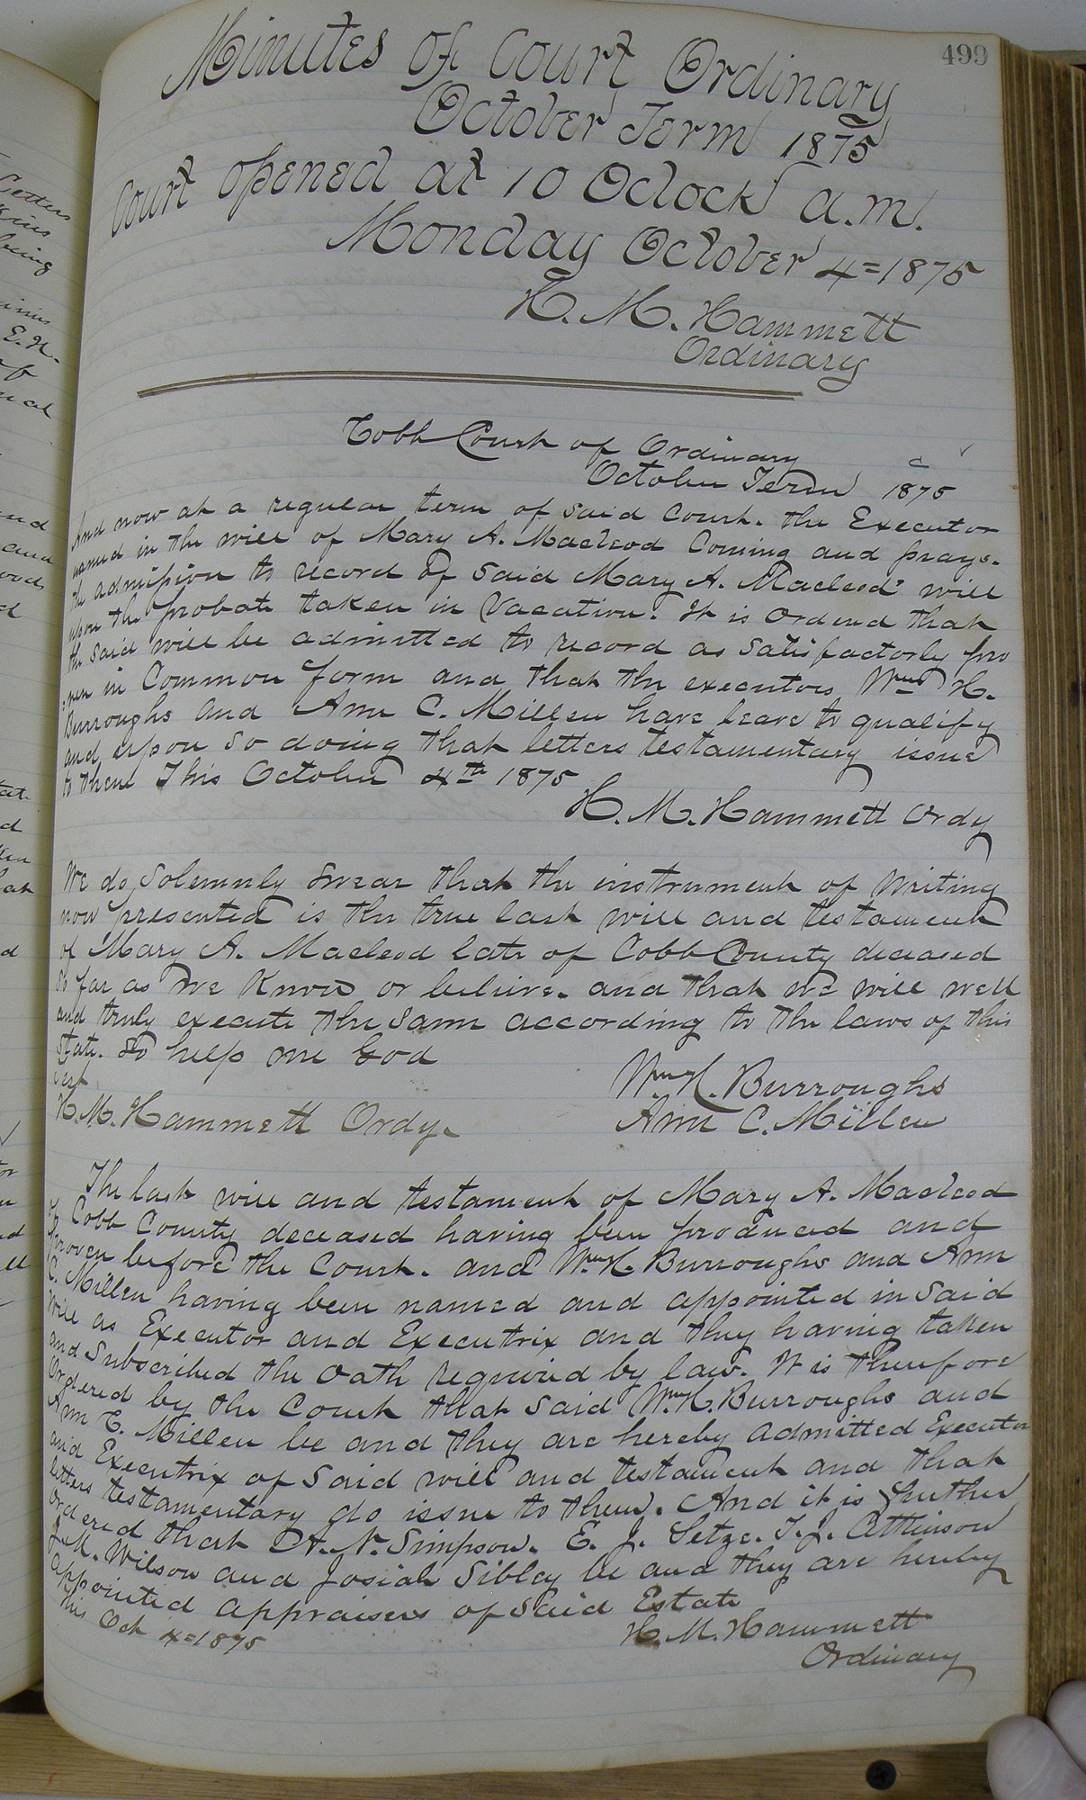 499
Minutes of Court Ordinary
October Term 1875
Court opened at 10 Oclock a.m.
Monday October 4=1875
H. M. Hammett
Ordinary
Cobb Court of Ordinary
October Term 1875
And now at a regular term of said Court. the Executor
named in the will of Mary A. Macleod Coming and prays.
the admission to record of said Mary A. Macleods will
upon the probate taken in Vacation. It is Ordered that
the said will be admitted to record as satisfactorly pro
ven in Common form and that the executors Wm H.
Burroughs and Ann C. Millen have leave to qualify
and upon so doing that letters testamentary issue
to them This October 4th 1875
H. M. Hammett Ordy
We do Solemnly Swear that the instrument of Writing
now presented is the true last will and testament
of Mary A. Macleod late of Cobb County deceased
so far as we Know or believe. and that we will well
and truly execute the same according to the laws of this
State. So help me God
Test
Wm H. Burroughs
H. M. Hammett Ordy.
Ann C. Millen
The last will and testament of Mary A. Macleod
of Cobb County deceased having been produced and
proven before the Court. and Wm H Burroughs and Ann
C. Millen having been named and appointed in said
Will as Executor and Executrix and they having taken
and Subscribed the oath required by law. It is therefore
Ordered by the Court that said Wm H. Burroughs and
Ann C. Millen be and they are hereby admitted Executor
and Executrix of said will and testament and that
letters testamentary do issue to them. And it is further
Ordered that A. N. Simpson. E. J. Setze. T. J. Atkinson
J. M. Wilson and Josiah Sibley be and they are hereby
appointed appraisers of said Estate
this Oct 4=1875
H. M. Hammett
Ordinary